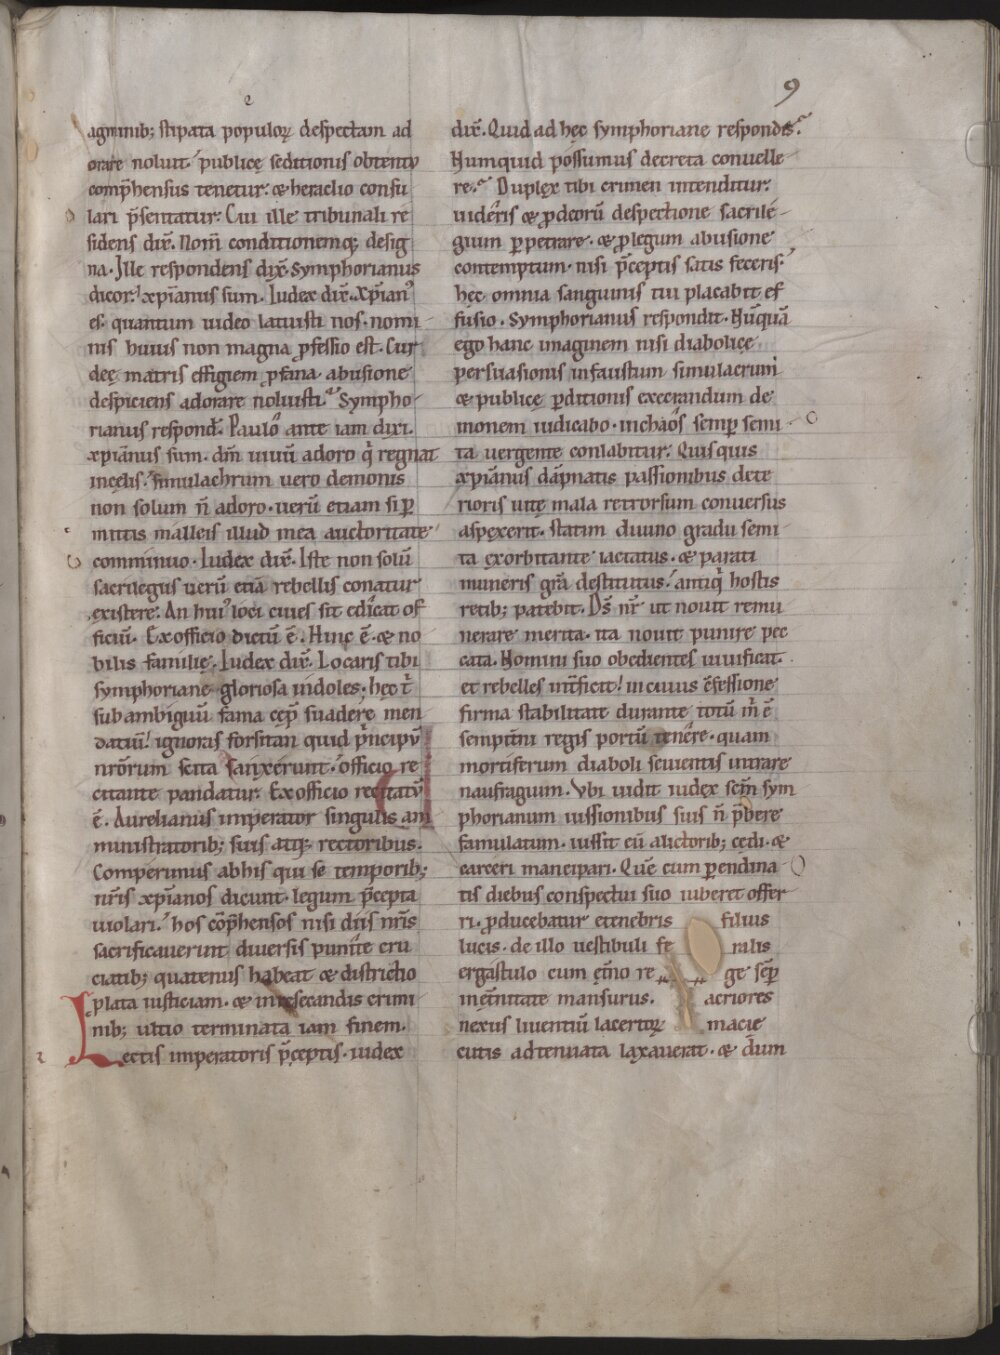 9
agminib; stipata populoꝝ despectam ad
orare noluit. publicę seditionis obtentu
comp̄hensus tenetur. & heraclio consu
lari p̄sentatur. Cui ille tribunali re
sidens dix̄. Nom̄ conditionemq; desig
na. Ille respondens dix̄. Symphorianus
dicor. xp̄ianus sum. Iudex dix̄. Xp̄ian᾽
es. quantum uideo latuisti nos. nomi
nis huius non magna ꝓfessio est. Cur
deę matris effigiem ꝓfana abusione
despiciens adorare noluisti? Sympho
rianus respond̄. Paulo ante iam dixi.
xp̄ianus sum. dm̄ uiuū adoro q̇ regnat
incęlis. simulachrum uero demonis
non solum n̄ adoro. uerū etiam si ꝑ
mittis malleis illud mea auctoritate
comminuo. Iudex dix̄. Iste non solū
sacrilegus uerū etiā rebellis conatur
existere. An hui᾽ loci ciues sit edicat of
ficiū. Ex officio dictū ē. Hinc ē. & no
bilis familię. Iudex dix̄. Locaris tibi
symphoriane gloriosa indoles. hęc t̄
sub ambiguū fama cęp̄ suadere men
datiū! ignoras forsitan quid ṗncipū
nr̄orum scita sanxerunt. officio re
citante pandatur. Ex officio recitatū
ē. Aurelianus imperator singulis am
ministratorib; suis atq; rectoribus.
Comperimus ab his qui se temporib;
nr̄is xp̄ianos dicunt. legum p̄cepta
uiolari. hos cōp̄hensos nisi diis nr̄is
sacrificauerint diuersis punite cru
ciatib; quatenus habeat & districtio
plata iusticiam. & in resecandis crimi
nib; ultio terminata iam finem.
Lectis imperatoris p̄ceptis. iudex
dix̄. Quid ad hęc symphoriane respondes?
Numquid possumus decreta conuelle
re? Duplex tibi crimen intenditur.
uideris & ꝓ deorū despectione sacrile
gium ꝑpetrare. & ꝓ legum abusione
contemptum. nisi p̄ceptis satis feceris.
hęc omnia sanguinis tui placabit ef
fusio. Symphorianus respondit. Nūquā
ego hanc imaginem nisi diabolicę
persuasionis infaustum simulacrum
& publicę ꝑditionis execrandum de
monem iudicabo. in chaos semp̄ semi
ta uergente conlabitur. Quisquis
xp̄ianus dāpnatis passionibus dete
rioris uitę mala retrorsum conuersus
aspexerit. statim duuno gradu semi
ta exorbitante iactatus. & parati
muneris gr̄a destitutus. antiq̇ hostis
retib; patebit. Ds̄ nr̄ ut nouit remu
nerare merita. ita nouit punire pec
cata. Homini suo obedientes uiuificat.
et rebelles int̄ficit! in cuius c̄fessione
firma stabilitate durante totū ṁ ē
sempit̄ni regis portū tenere. quam
mortiferum diaboli seuientis intrare
naufragium. Vbi uidit iudex sc̄m sym
phorianum iussionibus suis n̄ p̄bere
famulatum. iussit eū a lictorib; cędi. &
carceri mancipari. Quē cum ꝑendina
tis diebus conspectui suo iuberet offer
ri. ꝓducebatur e tenebris filius
lucis. de illo uestibuli fe ralis
ergastulo cum et̄no re ge semp̄
in et̄nitate mansurus. acriores
nexus liuentiū lacertoꝝ macie
cutis adtenuata laxauerat. & dum